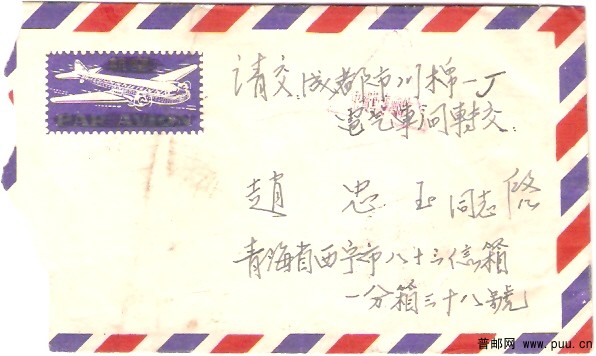 PAR AVION
请交:成都市川棉一厂
電气車间轉交.
趙 忠 玉 同志 啓
青海省西宁市八十三信箱
一分箱三十八號
普邮网 www.puu.cn